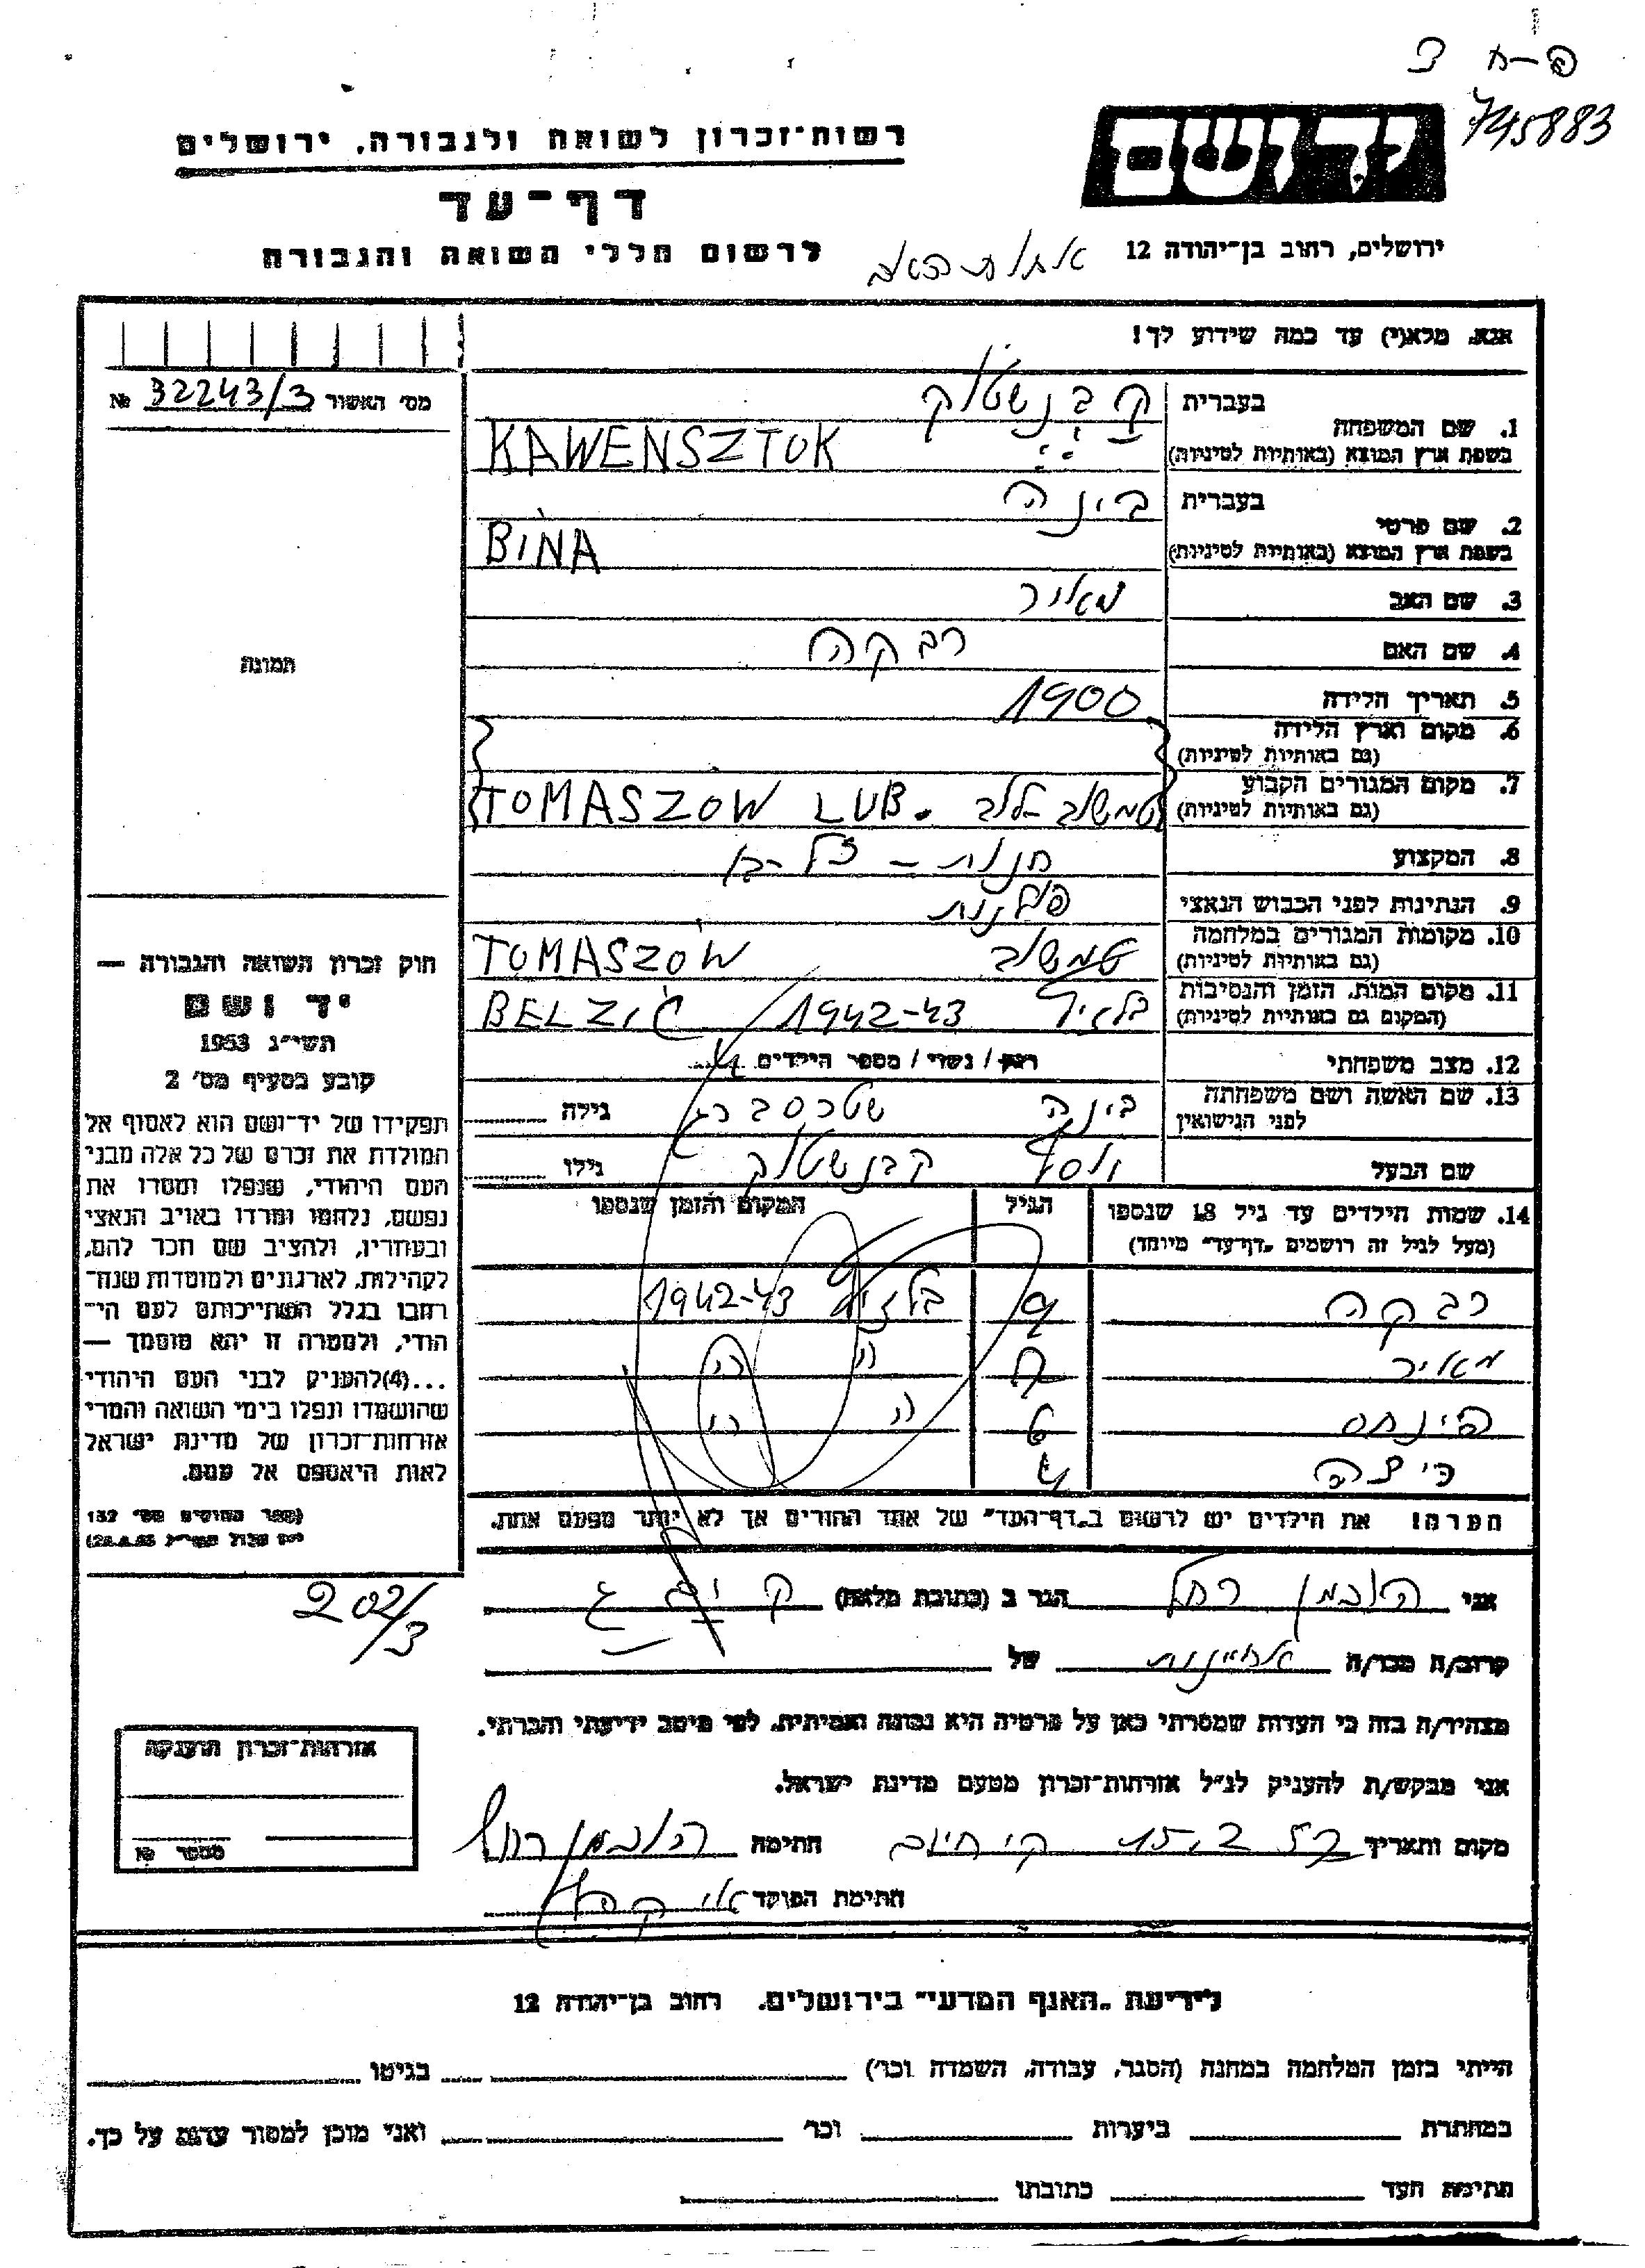 פ-ח 3
745883
יד ושם
רשות־זכרון לשואה ולגבורה, ירושלים
דף־עד
לרשום חללי השואה והגבורה
ירושלים, רחוב בן־יהודה 12
אחות האב
אנא, מלא(י) עד כמה שידוע לך!
מס׳ האשור 32243/3 №
1. שם המשפחה בעברית קבנשטוק
בשפת ארץ המוצא (באותיות לטיניות) KAWENSZTOK
2. שם פרטי בעברית בינה
בשפת ארץ המוצא (באותיות לטיניות) BINA
3. שם האב מאיר
4. שם האם רבקה
תמונה
5. תאריך הלידה 1900
6. מקום וארץ הלידה
(גם באותיות לטיניות)
7. מקום המגורים הקבוע
(גם באותיות לטיניות) טמשוב לוב TOMASZÓW LUB.
8. המקצוע חנות –
9. הנתינות לפני הכבוש הנאצי פולנית
10. מקומות המגורים במלחמה
(גם באותיות לטיניות) טמשוב TOMASZÓW
11. מקום המות, הזמן והנסיבות
(המקום גם באותיות לטיניות) בלזיץ 1942-43 BELZIC
12. מצב משפחתי רווק / נשוי / מספר הילדים 4
13. שם האשה ושם משפחתה
לפני הנישואין בינה שטרסברג גילה
שם הבעל יוסף קבנשטוק גילו
14. שמות הילדים עד גיל 18 שנספו הגיל המקום והזמן שנספו
(מעל לגיל זה רושמים "דף־עד" מיוחד)
רבקה 9 בלזיץ 1942-43
מאיר " "
פינחס 6 " "
ריצה 4
הערה! את הילדים יש לרשום ב"דף־העד" של אחד ההורים אך לא יותר מפעם אחת.
חוק זכרון השואה והגבורה —
יד ושם
תשי״ג 1953
קובע בסעיף מס׳ 2
תפקידו של יד־ושם הוא לאסוף אל
המולדת את זכרם של כל אלה מבני
העם היהודי, שנפלו ומסרו את
נפשם, נלחמו ומרדו באויב הנאצי
ובעוזריו, ולהציב שם וזכר להם,
לקהילות, לארגונים ולמוסדות שנח־
רבו בגלל השתייכותם לעם הי־
הודי, ולמטרה זו יהא מוסמך —
...(4)להעניק לבני העם היהודי
שהושמדו ונפלו בימי השואה והמרי
אזרחות־זכרון של מדינת ישראל
לאות היאספם אל עמם.
(ספר החוקים מס׳ 132
202/3
אני הוכמן רחל הגר ב (כתובת מלאה)
קרוב/ה מכר/ה אחיינות של
מצהיר/ה בזה כי העדות שמסרתי כאן על פרטיה היא נכונה ואמיתית, לפי מיטב ידיעתי והכרתי.
אני מבקש/ת להעניק לנ״ל אזרחות־זכרון מטעם מדינת ישראל.
מקום ותאריך 15.2.57 ק׳ חיים חתימה הוכמן רחל
חתימת הפוקד
אזרחות־זכרון הוענקה
מספר №
לידיעת "האגף המדעי" בירושלים. רחוב בן־יהודה 12
הייתי בזמן המלחמה במחנה (הסגר, עבודה, השמדה וכו׳) בגיטו
במחתרת ביערות וכו׳ ואני מוכן למסור עדות על כך.
חתימת העד כתובתו